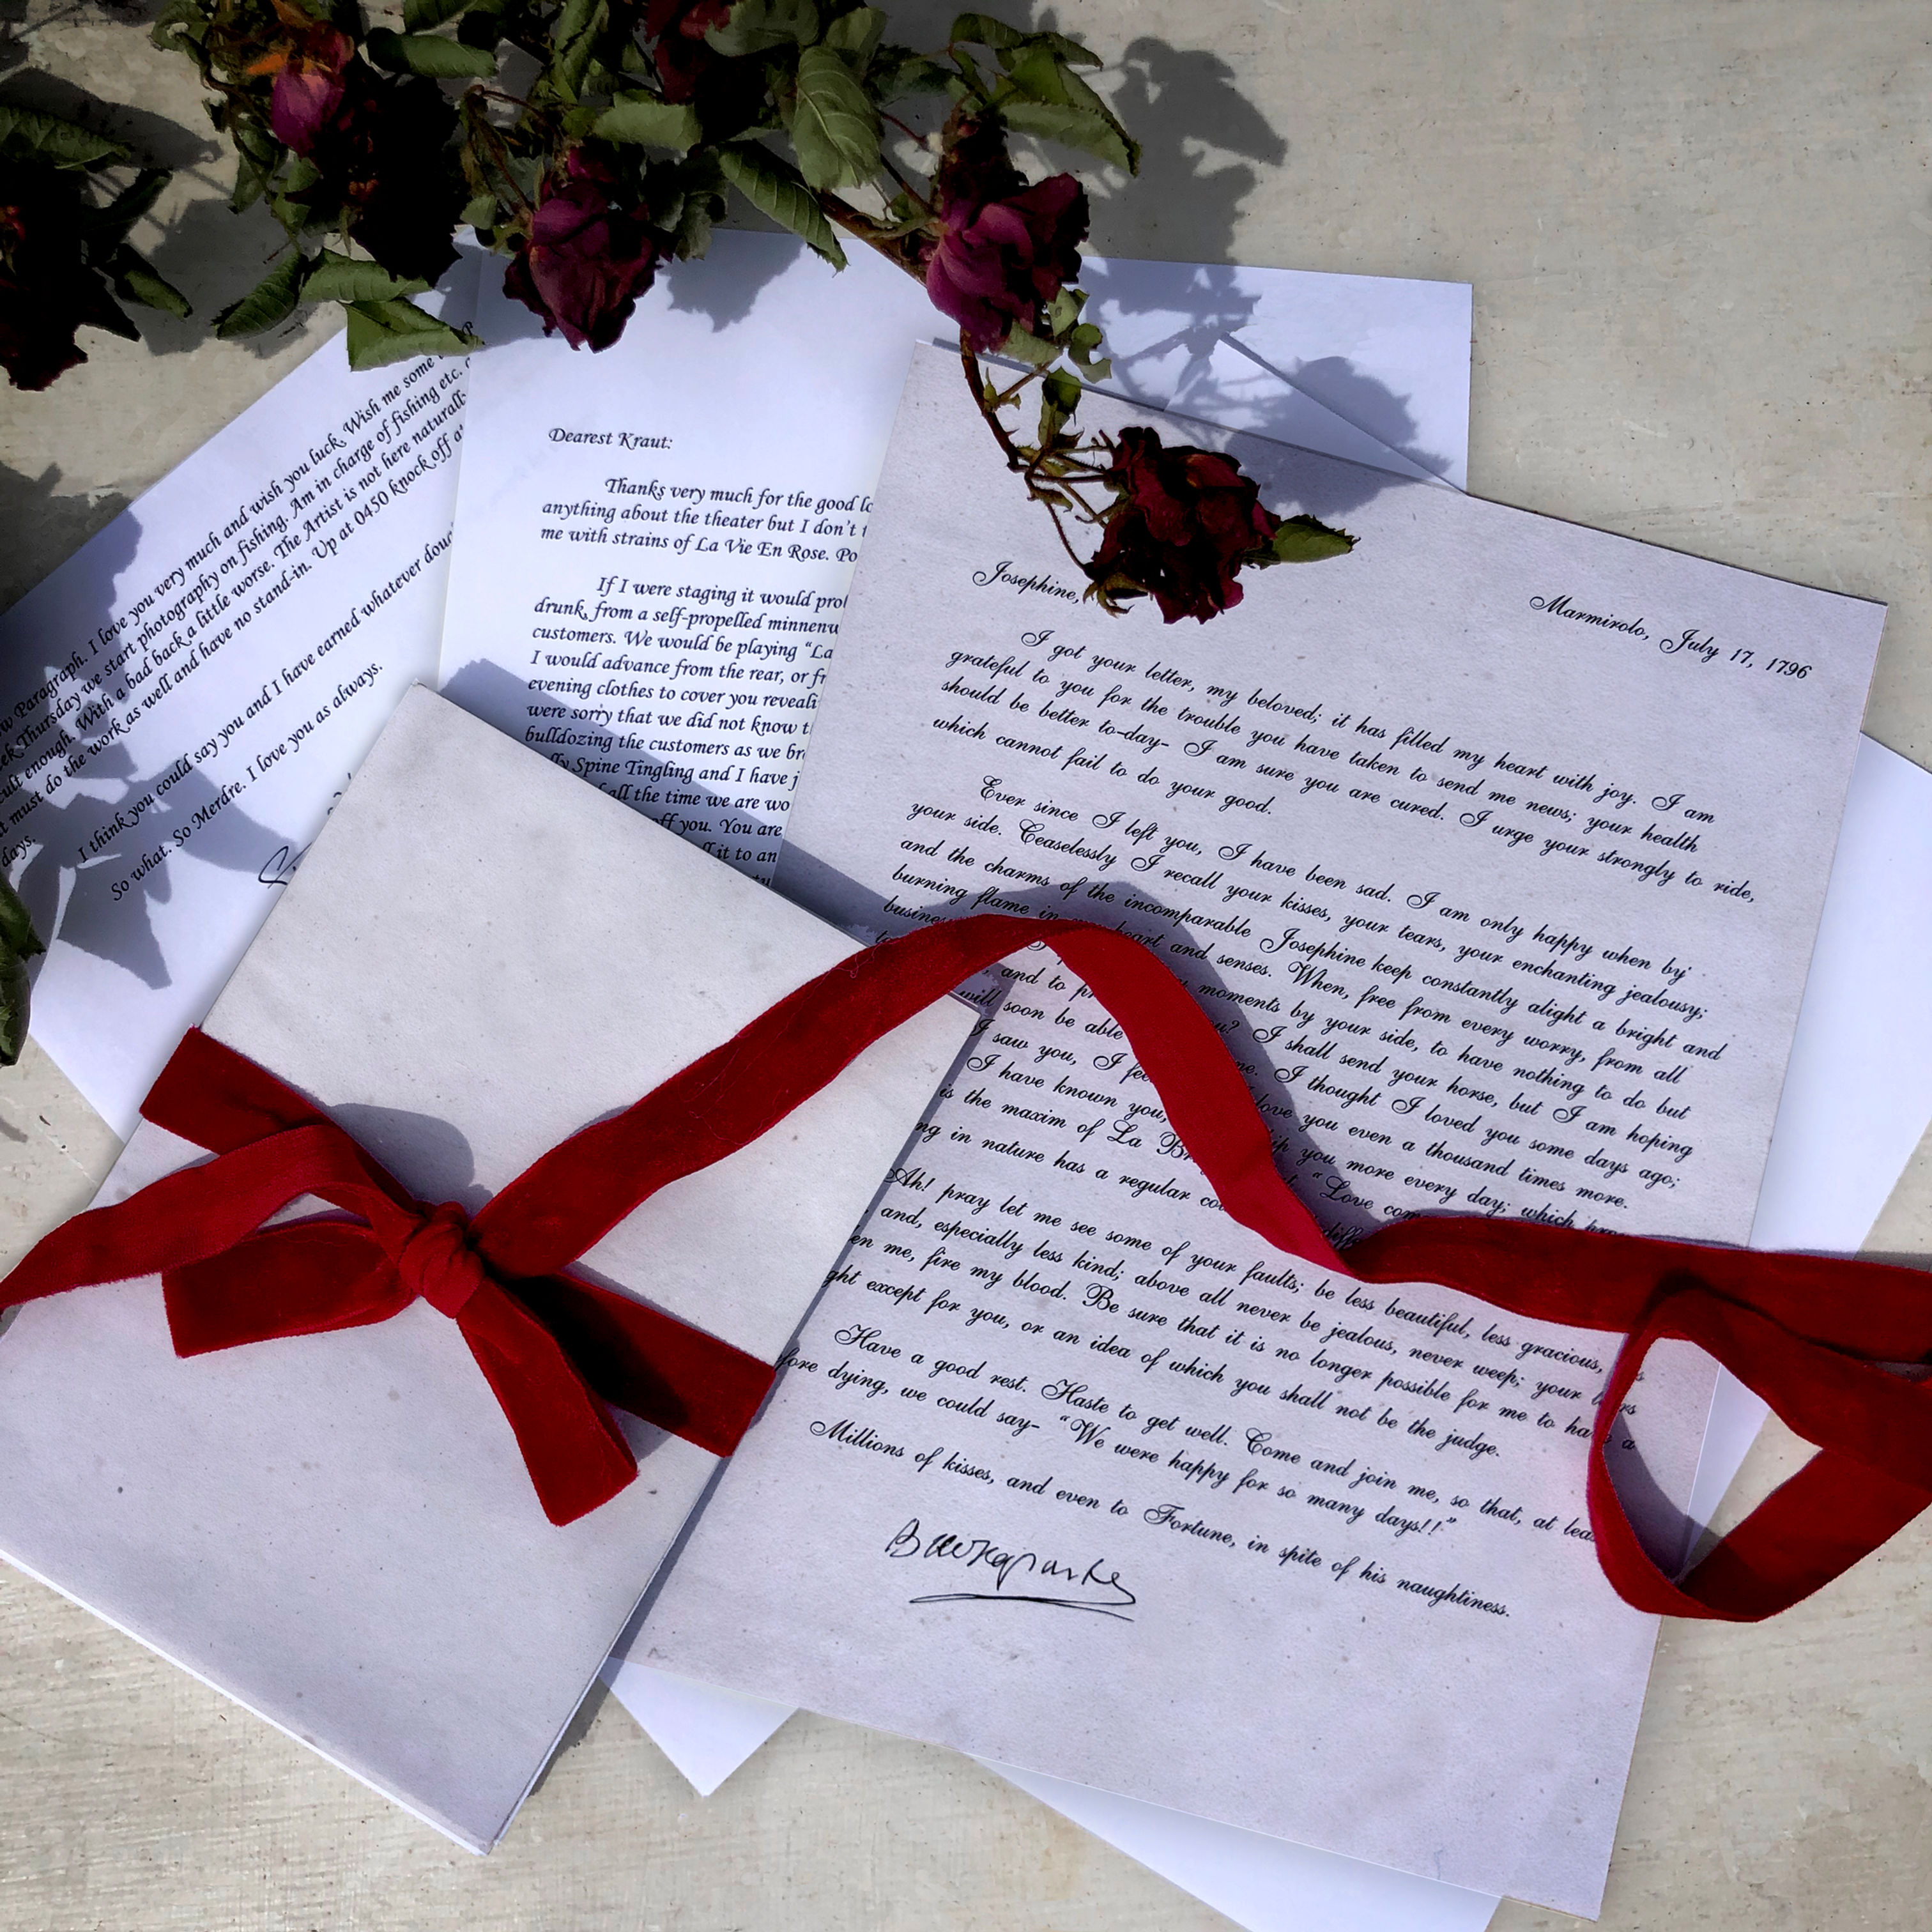 Paragraph. I love you very much and wish you luck. Wish me some
Thursday we start photography on fishing. Am in charge of fishing etc.
enough. With a bad back a little worse. The Artist is not here
must do the work as well and have no stand-in. Up at 0450 knock off
days.
I think you could say you and I have earned whatever
So what. So Merdre. I love you as always.
Dearest Kraut:
Thanks very much for the good
anything about the theater but I don't
me with strains of La Vie En Rose.
If I were staging it would
drunk, from a self-propelled
customers. We would be playing "La
I would advance from the rear, or
evening clothes to cover you
were sorry that we did not know
bulldozing the customers as we
Spine Tingling and I have
all the time we are
off you. You are
it to an
Marmirolo, July 17, 1796
Josephine,
I got your letter, my beloved; it has filled my heart with joy. I am
grateful to you for the trouble you have taken to send me news; your health
should be better to-day- I am sure you are cured. I urge your strongly to ride,
which cannot fail to do your good.
Ever since I left you, I have been sad. I am only happy when by
your side. Ceaselessly I recall your kisses, your tears, your enchanting jealousy;
and the charms of the incomparable Josephine keep constantly alight a bright and
burning flame in heart and senses. When, free from every worry, from all
moments by your side, to have nothing to do but
and to I shall send your horse, but I am hoping
will soon be able I thought I loved you some days ago;
I saw you, I love you even a thousand times more.
I have known you, you more every day; which
is the maxim of La "Love
in nature has a regular
Ah! pray let me see some of your faults; be less beautiful, less gracious,
and, especially less kind; above all never be jealous, never weep; your
me, fire my blood. Be sure that it is no longer possible for me to a
except for you, or an idea of which you shall not be the judge.
Have a good rest. Haste to get well. Come and join me, so that, at
dying, we could say- "We were happy for so many days!!"
Millions of kisses, and even to Fortune, in spite of his naughtiness.